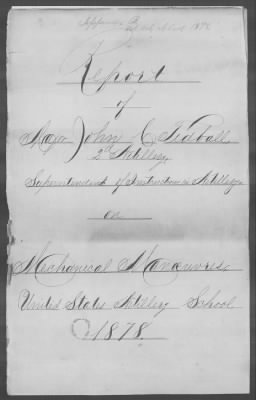 Appendix B
1878
Report
of
Major John C. Tidball,
2d Artillery,
Superintendent of Instruction in Artillery
on
Mechanical Manœuvres,
United States Artillery School
1878